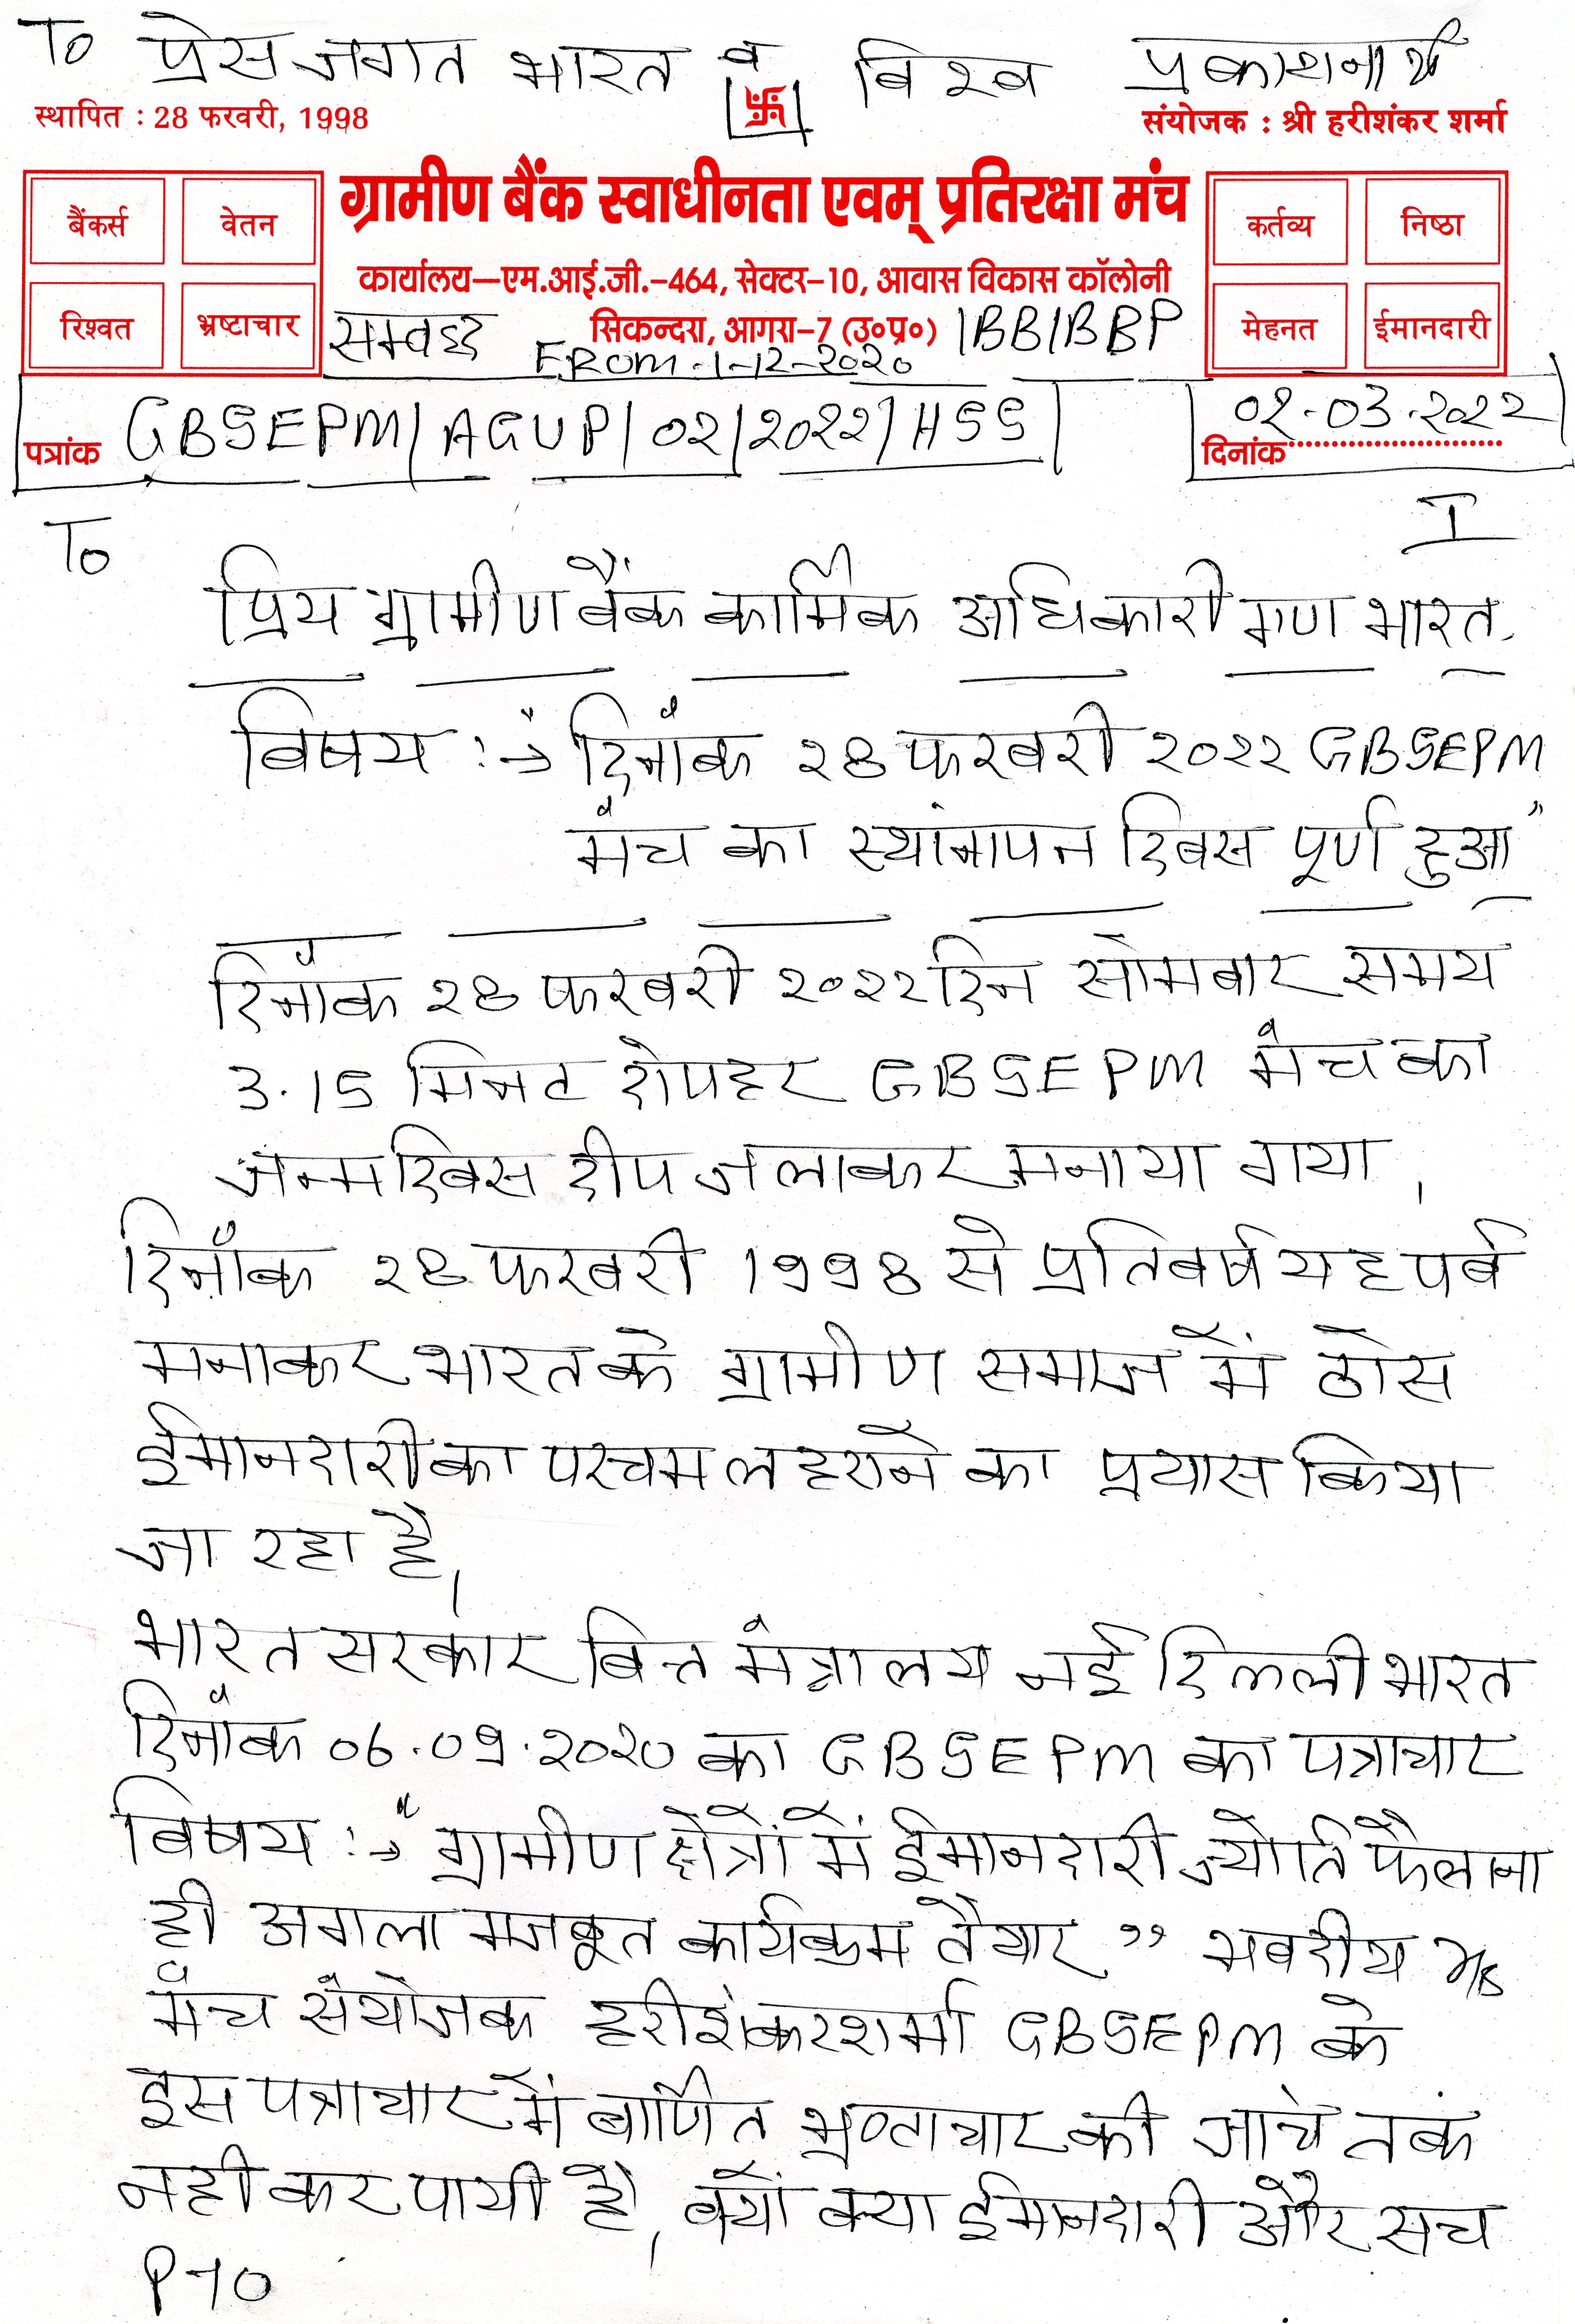 To प्रेस जगत भारत व विश्व प्रकाशनार्थ
स्थापित : 28 फरवरी, 1998
संयोजक : श्री हरीशंकर शर्मा
ग्रामीण बैंक स्वाधीनता एवम् प्रतिरक्षा मंच
बैंकर्स वेतन
कर्तव्य निष्ठा
कार्यालय—एम.आई.जी.-464, सेक्टर-10, आवास विकास कॉलोनी
रिश्वत भ्रष्टाचार
सम्वद्ध सिकन्दरा, आगरा-7 (उ०प्र०) IBBIBBP
मेहनत ईमानदारी
FROM.1-12-2020
पत्रांक GBSEPM/AGUP/02/2022/HSS
दिनांक 02.03.2022
I
To
प्रिय ग्रामीण बैंक कार्मिक अधिकारी गण भारत.
विषय :→ "दिनाँक 28 फरवरी 2022 GBSEPM
मंच का स्थांनापन दिवस पूर्ण हुआ"
दिनाँक 28 फरवरी 2022 दिन सोमबार समय
3.15 मिनट दोपहर GBSEPM मंच का
जन्मदिवस दीप जलाकर मनाया गया।
दिनाँक 28 फरवरी 1998 से प्रतिवर्ष यह पर्व
मनाकर भारत के ग्रामीण समाज में ठोस
ईमानदारी का परचम लहराने का प्रयास किया
जा रहा है।
भारत सरकार वित्त मंत्रालय नई दिल्ली भारत
दिनाँक 06.09.2020 का GBSEPM का पत्राचार
विषय :→ "ग्रामीण क्षेत्रों में ईमानदारी ज्योति फैलाना
ही अगला मजबूत कार्यक्रम तैयार" भवदीय
मंच संयोजक हरीशंकर शर्मा GBSEPM के
इस पत्राचार में वार्णित भ्रष्टाचार की जांच तक
नही कर पायी है। क्यों क्या ईमानदारी और सच
PTO